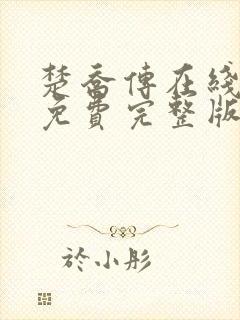 楚喬傳在綫
免費完整版
於小彤